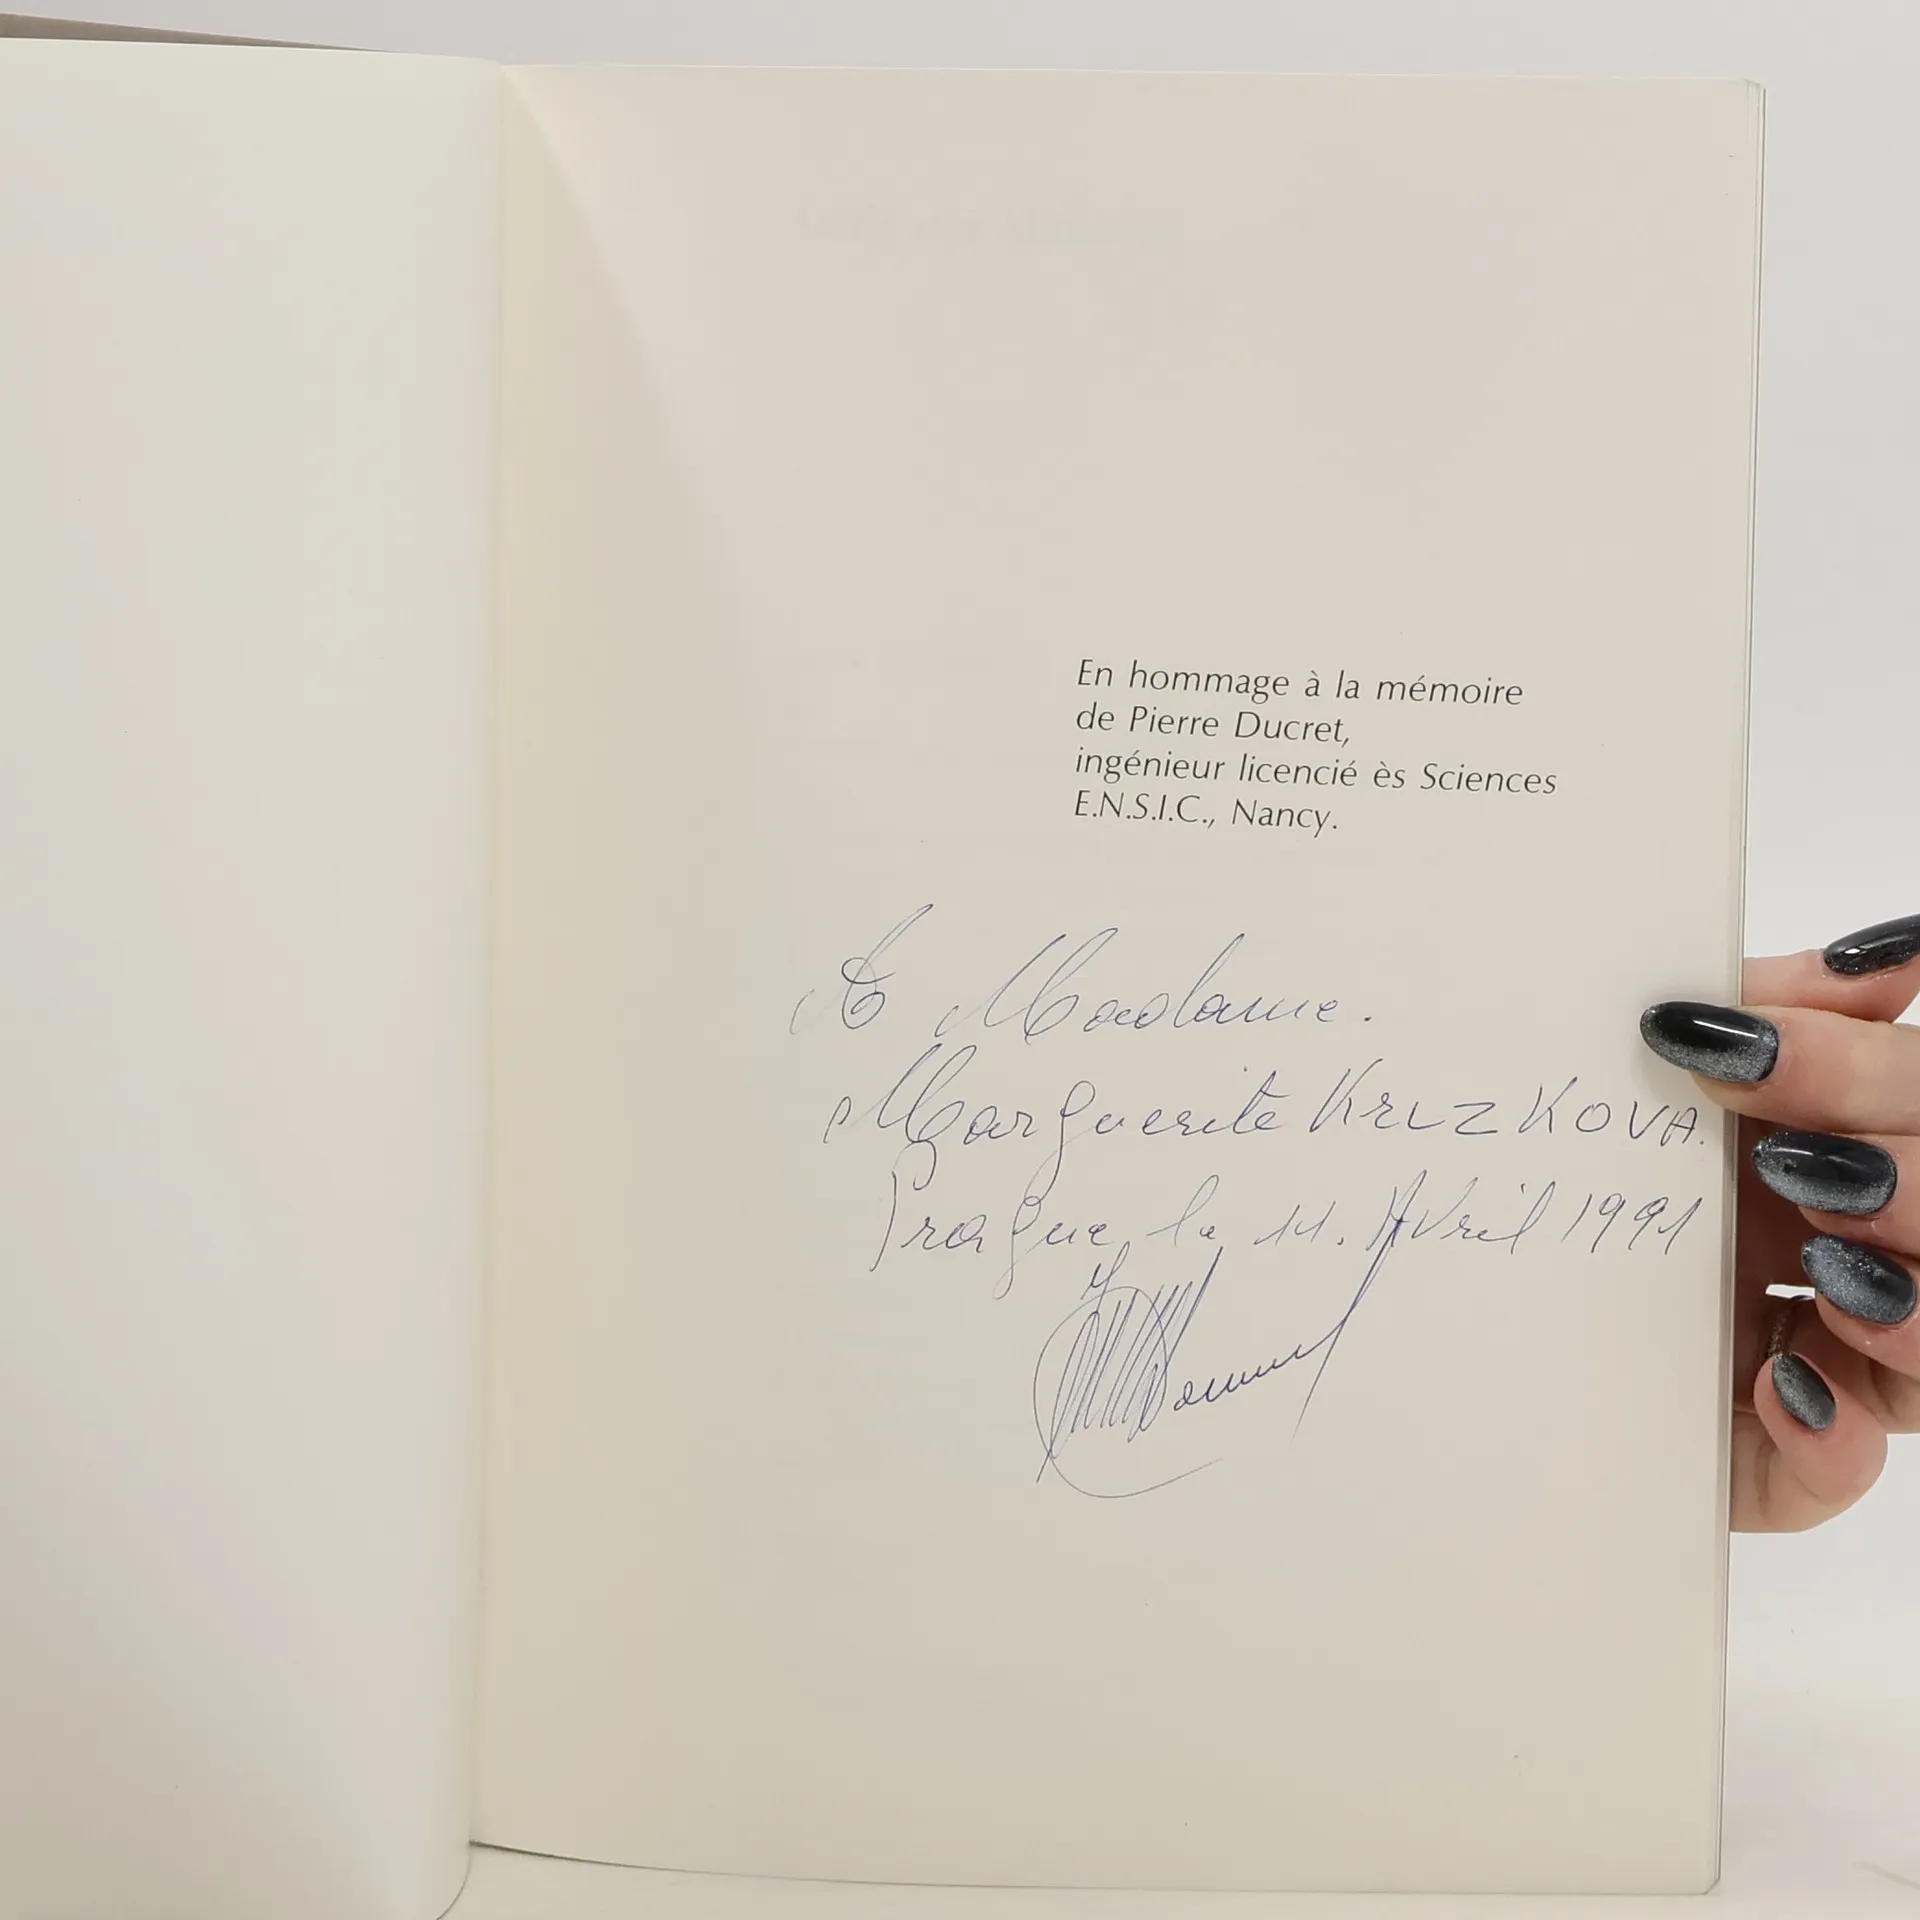 En hommage à la mémoire
de Pierre Ducret,
ingénieur licencié ès Sciences
E.N.S.I.C., Nancy.
A Madame.
Marguerite KRIZKOVA.
Prague, le 11. Avril 1991